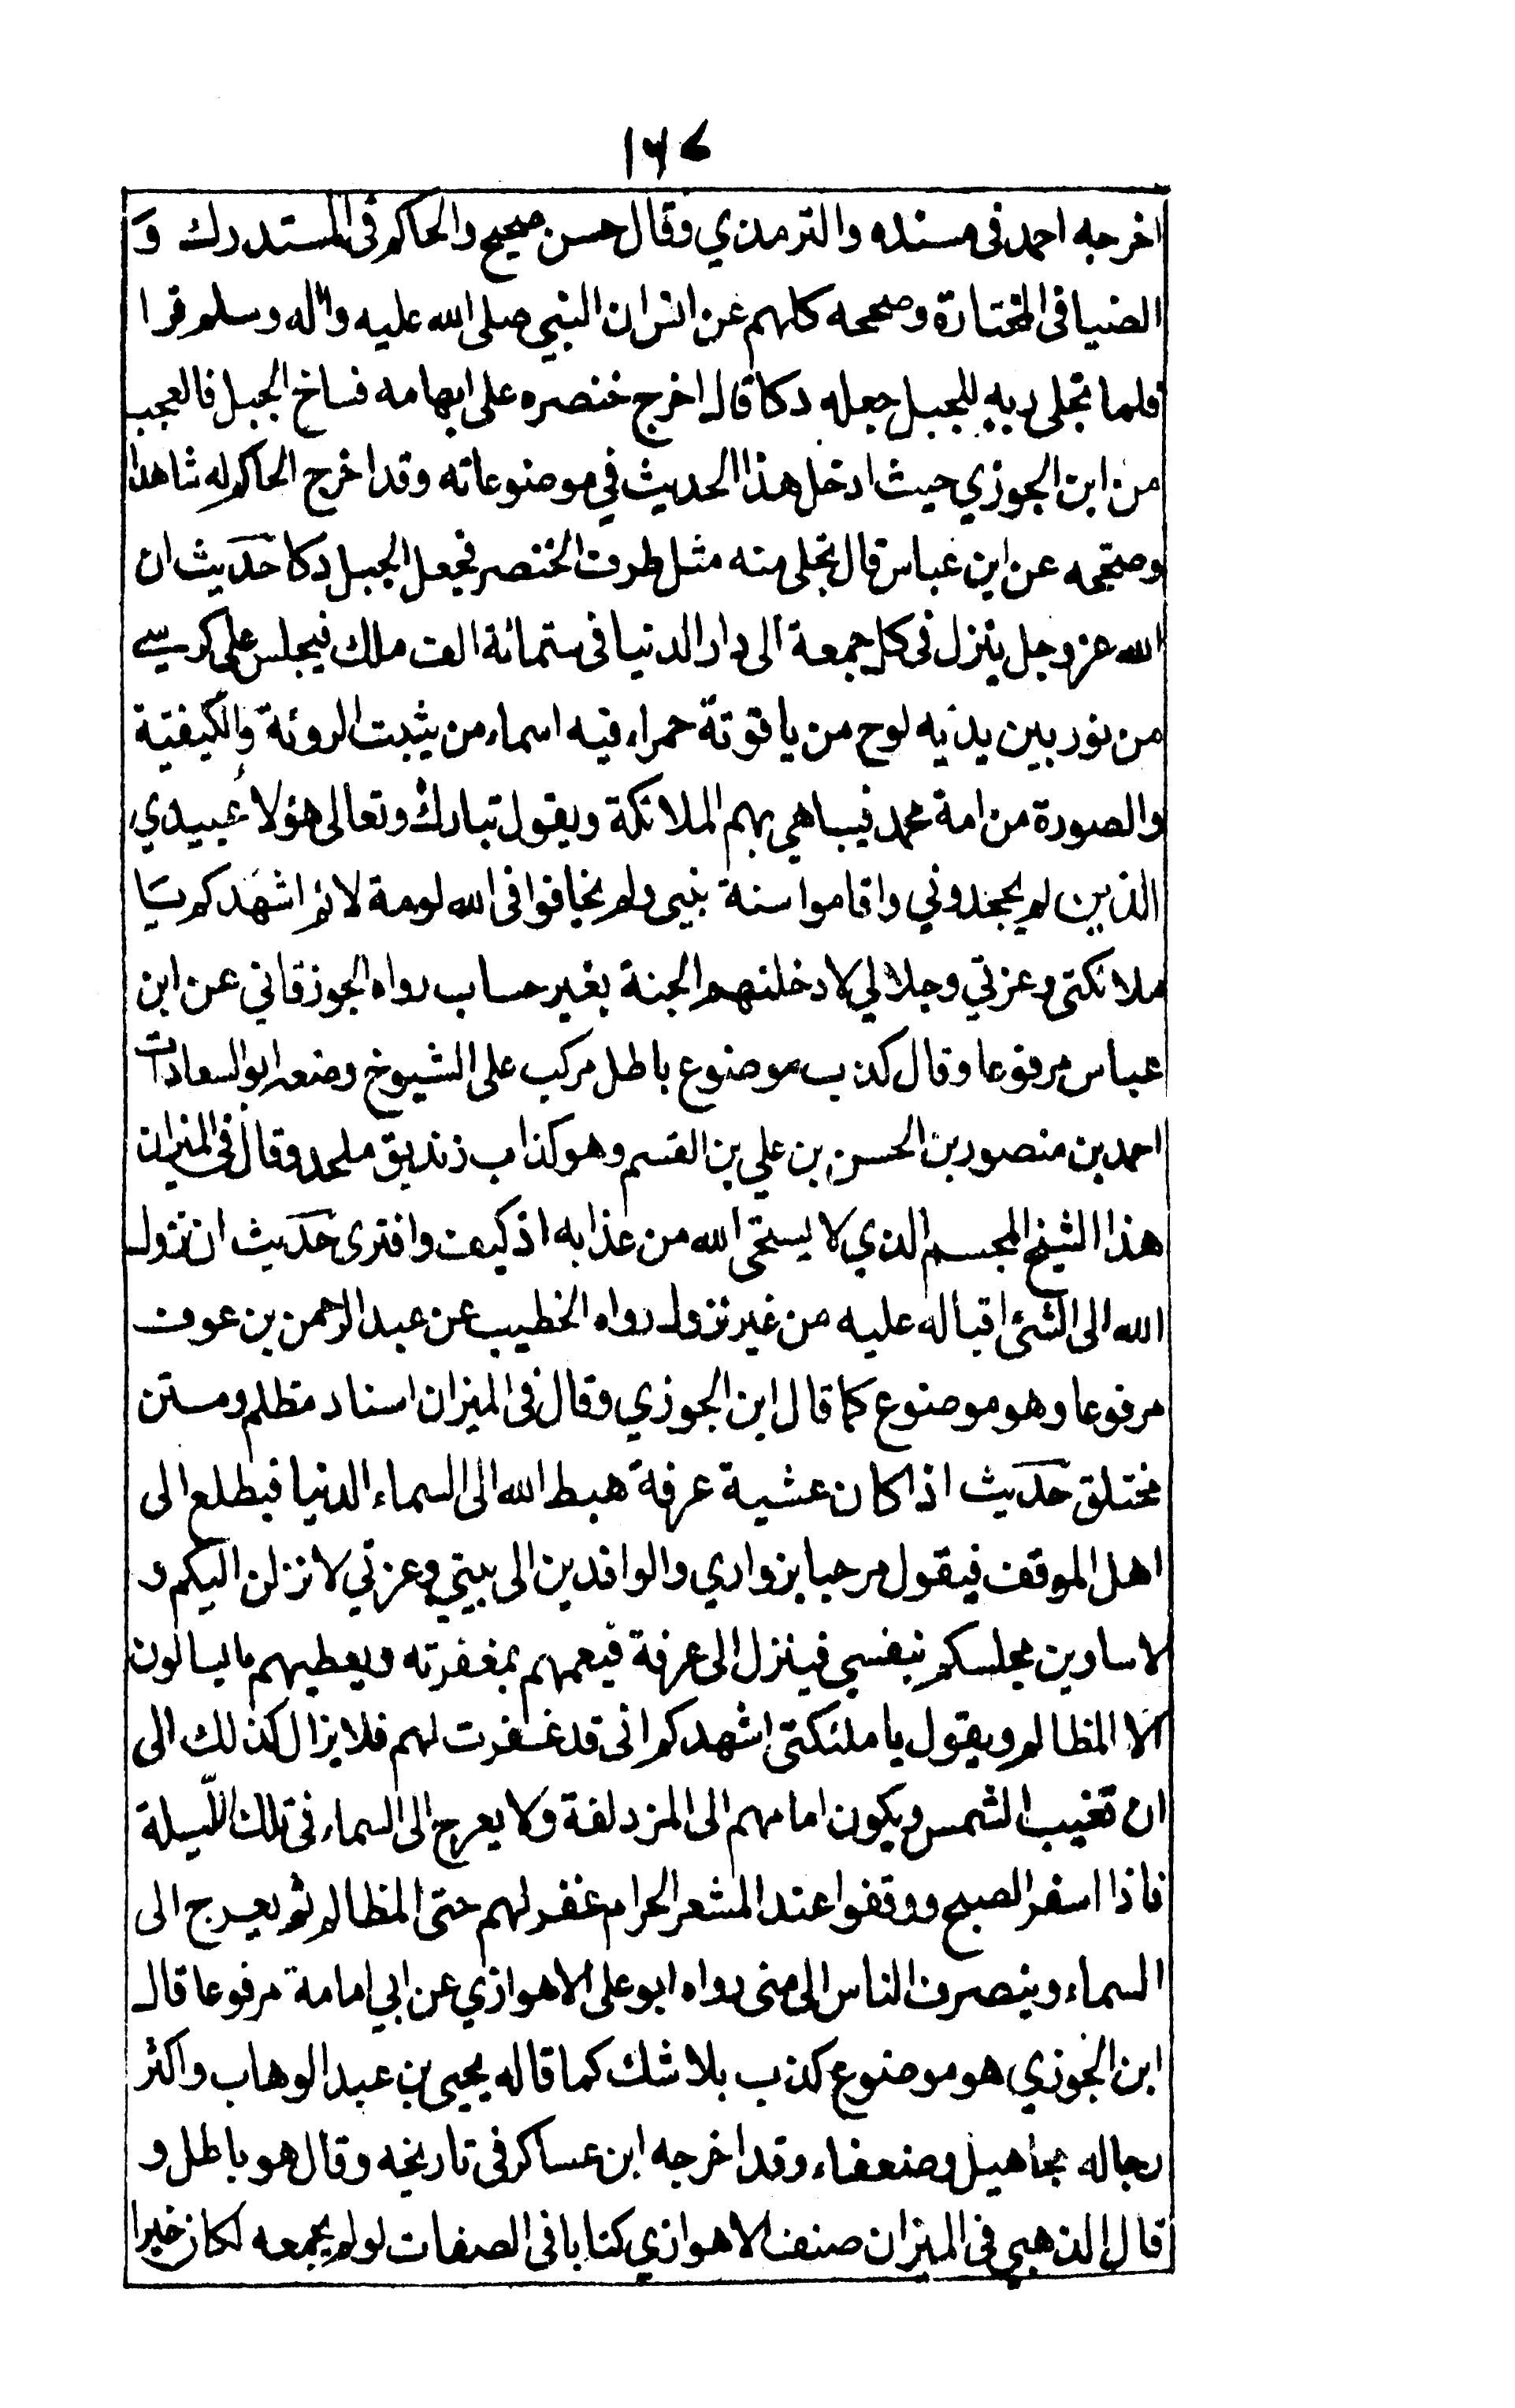 ١٦٧
اخرجه احمد فى مسنده والترمذي وقال حسن صحيح والحاكم فى المستدرك وَ
الضيا فى المختارة وصححه كلهم عن انس ان النبي صلى الله عليه واله وسلم قرا
فلما تجلى ربه للجبل جعله دكا قال اخرج خنصره على ابهامه فساخ الجبل فالعجب
من ابن الجوزي حيث ادخل هذا الحديث في موضوعاته وقد اخرج الحاكم له شاهدا
وصححه عن ابن عباس قال تجلى منه مثل طرف الخنصر فجعل الجبل دكا حديث ان
الله عز وجل ينزل فى كل جمعة الى دار الدنيا فى ستمائة الف ملك فيجلس على كرسي
من نور بين يديه لوح من ياقوتة حمراء فيه اسماء من يثبت الروئة والكيفيّة
والصورة من امة محمد فيباهي بهم الملائكة ويقول تبارك وتعالى هؤلا عُبيدي
الذين لم يجحدوني واقاموا سنة نبيى ولم يخافوا فى الله لومة لائم اشهدكم يا
ملائكتى وعزتي وجلالي لادخلنهم الجنة بغير حساب رواه الجوزقاني عن ابن
عباس مرفوعا وقال كذب موضوع باطل مركب على الشيوخ وضعه ابو السعادات
احمد بن منصور بن الحسن بن علي بن القسم وهو كذاب زنديق ملحد وقال فى الميزان
هذا الشيخ المجسم الذي لا يستحى الله من عذابه اذ كيف وافترى حديث ان نزول
الله الى الشئ اقباله عليه من غير نزول رواه الخطيب عن عبد الرحمن بن عوف
مرفوعا وهو موضوع كما قال ابن الجوزي وقال فى الميزان اسناد مظلم ومتن
مختلق حديث اذا كان عشية عرفة هبط الله الى السماء الدنيا فيطلع الى
اهل الموقف فيقول مرحبا بزواري والوافدين الى بيتي وعزتي لانزلن اليكم و
لاساوين مجلسكم بنفسي فينزل الى عرفة فيعمهم بمغفرته ويعطيهم ما يسالون
الا المظالم ويقول يا ملئكتى اشهدكم انى قد غفرت لهم فلا يزال كذلك الى
ان تغيب الشمس ويكون امامهم الى المزدلفة ولا يعرج الى السماء فى تلك اللّيلة
فاذا اسفر الصبح ووقفوا عند المشعر الحرام غفر لهم حتى المظالم ثم يعرج الى
السماء وينصرف الناس الى منى رواه ابو على الاهوازي عن ابي امامة مرفوعا قال
ابن الجوزي هو موضوع كذب بلا شك كما قاله يحيى بن عبد الوهاب واكثر
رجاله مجاهيل وضعفاء وقد اخرجه ابن عساكر فى تاريخه وقال هو باطل و
قال الذهبي فى الميزان صنف الاهوازي كتابا فى الصفات لو لم يجمعه لكان خيرا